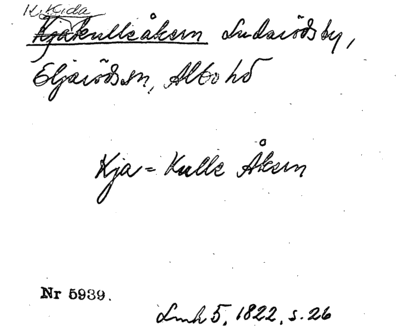 Kjakulleåkern Ludaröds by,
Eljaröds sn, Albo hd
Kja = Kulle Åkern
Nr 5939.
Lmh 5, 1822, s. 26